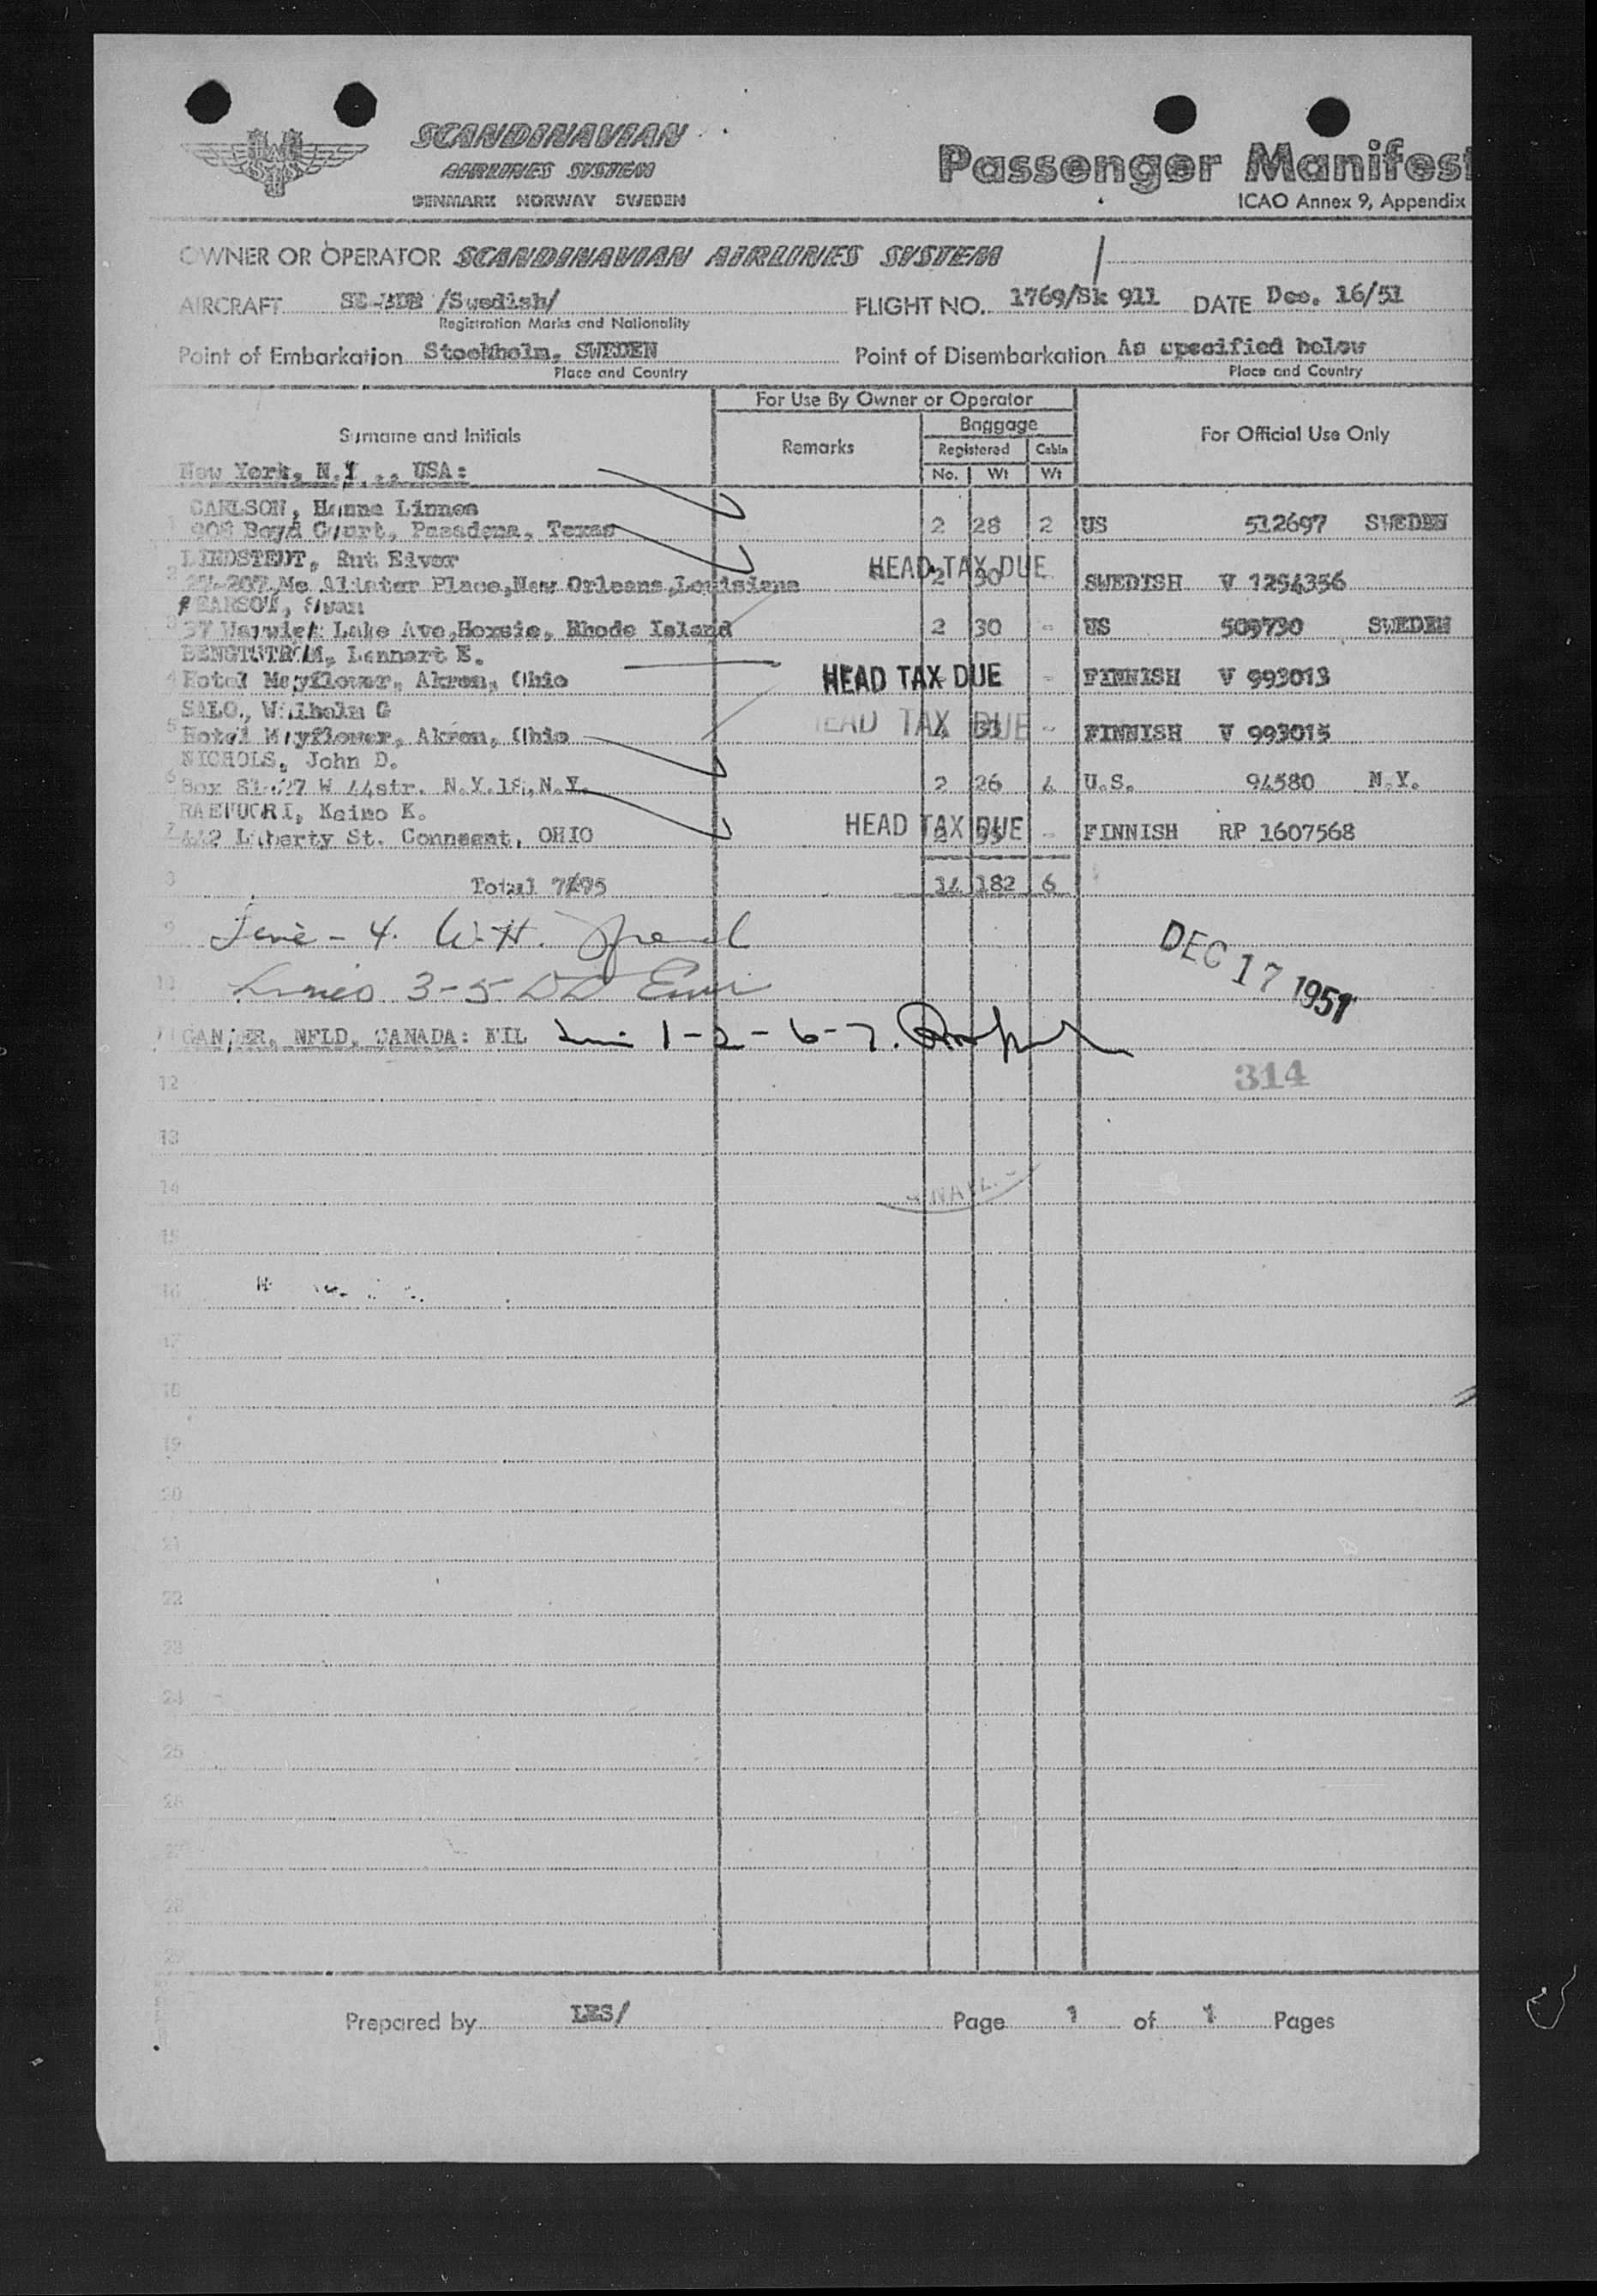 SCANDINAVIAN
AIRLINES SYSTEM
DENMARK NORWAY SWEDEN
Passenger Manifest
ICAO Annex 9, Appendix
OWNER OR OPERATOR SCANDINAVIAN AIRLINES SYSTEM
AIRCRAFT SE-BDB /Swedish/ FLIGHT NO. 1769/Sk 911 DATE Dec. 16/51
Registration Marks and Nationality
Point of Embarkation Stockholm, SWEDEN Point of Disembarkation As specified below
Place and Country Place and Country
For Use By Owner or Operator
Surname and Initials Remarks Baggage For Official Use Only
Registered Cabin
No. Wt Wt
New York, N.Y., USA:
CARLSON, Hanna Linnea
1 Boyd Court, Pasadena, Texas 2 28 2 US 512697 SWEDEN
LINDSTEDT, Rut Eivor
2 Place, New Orleans, Louisiana HEAD TAX DUE 2 30 - SWEDISH V 1254356
PEARSON, Swan
3 37 Warwick Lake Ave, Hoxsie, Rhode Island 2 30 - US 509730 SWEDEN
BENGTSTRÖM, Lennart E.
4 Hotel Mayflower, Akron, Ohio HEAD TAX DUE - FINNISH V 993013
SALO, Wilhelm G
5 Hotel Mayflower, Akron, Ohio HEAD TAX DUE - FINNISH V 993015
NICHOLS, John D.
6 Box W 44str. N.Y.18, N.Y. 2 26 4 U.S. 94580 N.Y.
Kaino K.
7 442 Liberty St. Conneaut, OHIO HEAD TAX DUE 2 - FINNISH RP 1607568
8 Total 7/95 14 182 6
9 Line - 4. W.H.
10 Lines 3-5
DEC 17 1951
11 GANDER, NFLD, CANADA: NIL 1-2-6-7.
314
12
13
14
15
16
17
18
19
20
21
22
23
24
25
26
27
28
29
Prepared by LES/ Page 1 of 1 Pages